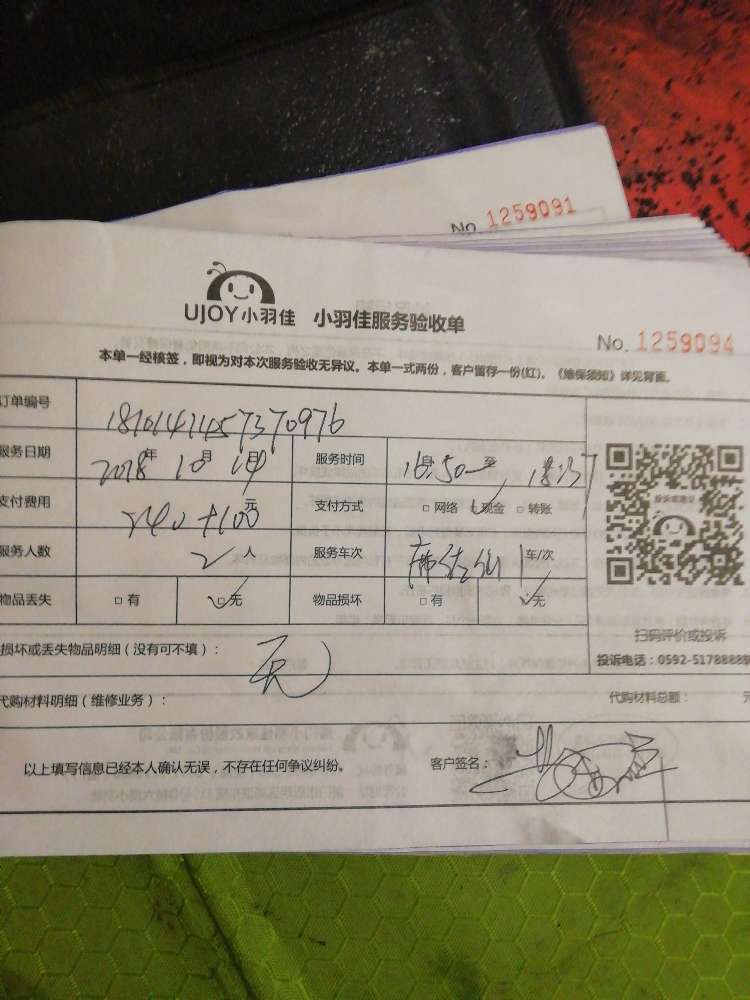 No. 1259091
UJOY小羽佳 小羽佳服务验收单
No. 1259094
本单一经核签，即视为对本次服务验收无异议。本单一式两份，客户留存一份(红)。《维保须知》详见背面。
订单编号
服务日期 2018年10月14 服务时间 16:50至18:37
支付费用 240+100元 支付方式 □网络 现金 □转账
服务人数 2人 服务车次 1车/次
物品丢失 □有 无 物品损坏 □有 无
扫码评价或投诉
损坏或丢失物品明细（没有可不填）： 无
投诉电话：0592-5178888
代购材料明细（维修业务）： 代购材料总额： 元
以上填写信息已经本人确认无误，不存在任何争议纠纷。 客户签名：